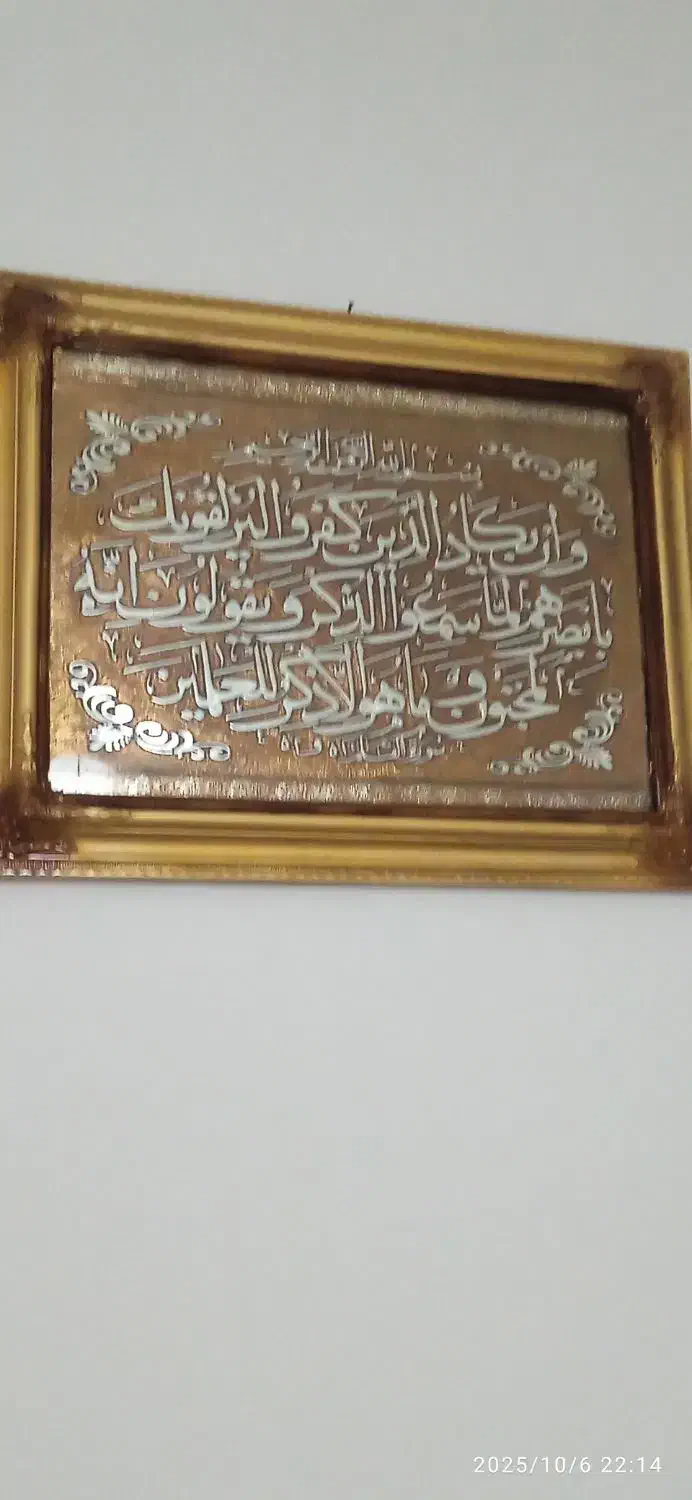 بسم الله الرحمن الرحيم
وان يكاد الذين كفروا ليزلقونك
بابصرهم لما سمعوا الذكر ويقولون انه
لمجنون وما هو الا ذكر للعلمين
2025/10/6 22:14